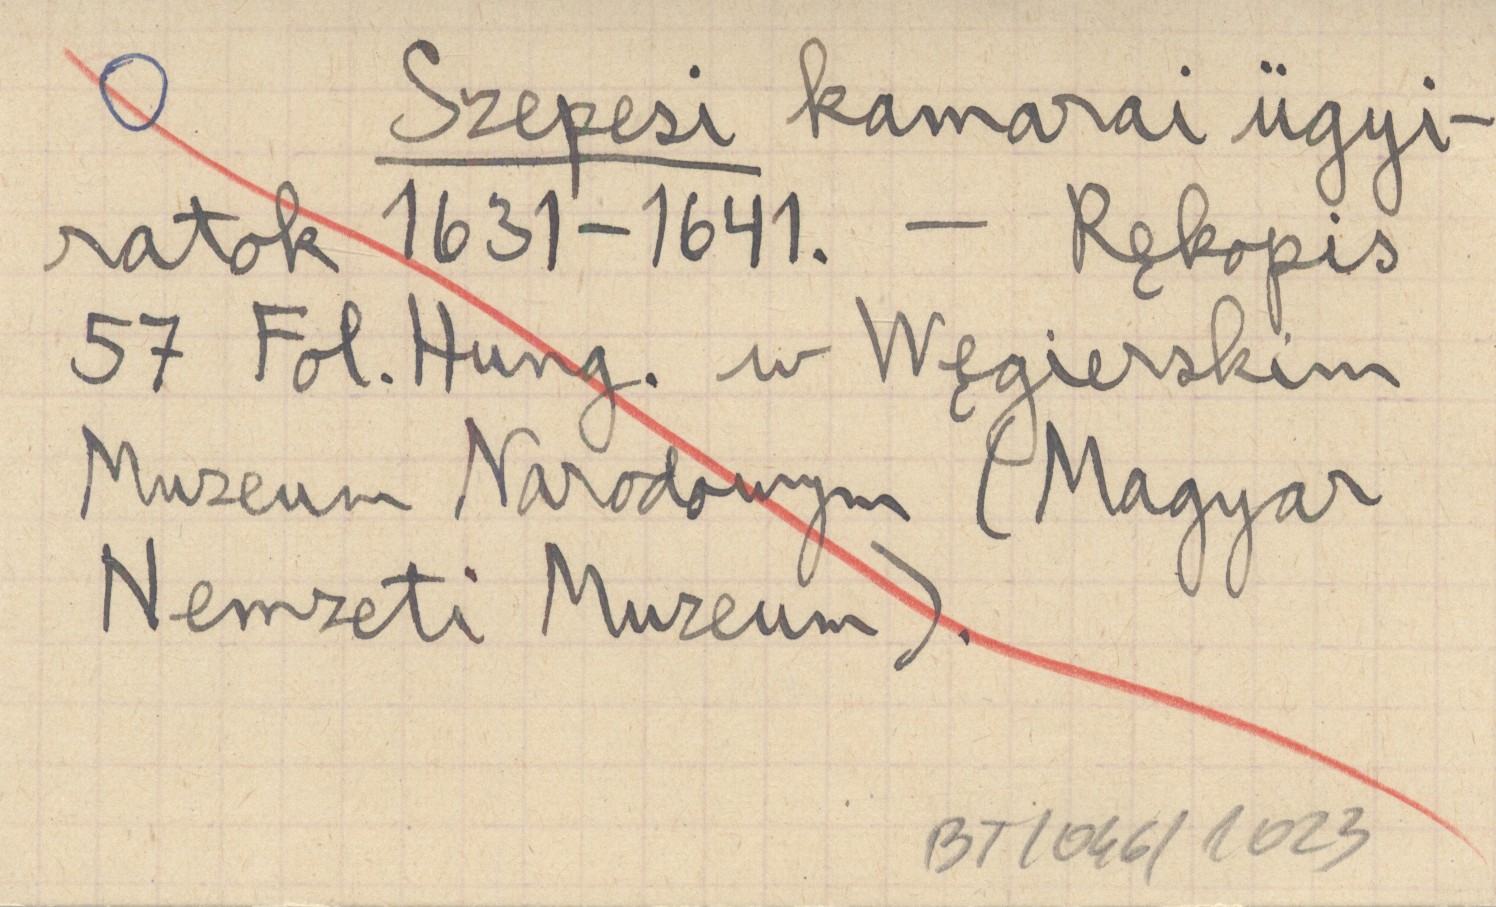 Szepesi kamarai ügyi-
ratok 1631-1641. — Rękopis
57 Fol. Hung. w Węgierskim
Muzeum Narodowym (Magyar
Nemzeti Muzeum).
BT/046/1023